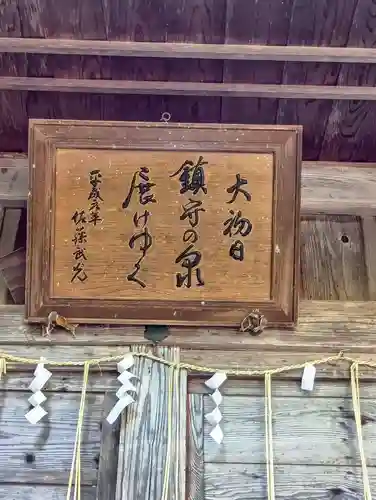 大初日
鎮守の泉
展けゆく
平成元年
佐藤武光